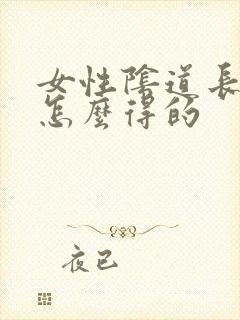 女性陰道長
怎麼得的
夜已